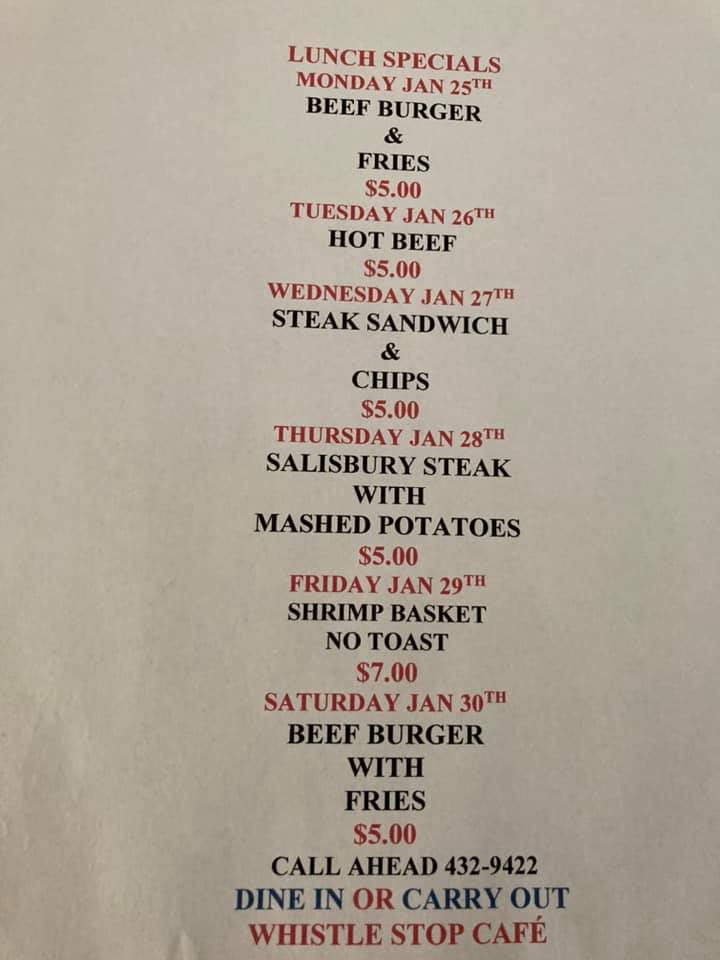 LUNCH SPECIALS
MONDAY JAN 25TH
BEEF BURGER
&
FRIES
$5.00
TUESDAY JAN 26TH
HOT BEEF
$5.00
WEDNESDAY JAN 27TH
STEAK SANDWICH
&
CHIPS
$5.00
THURSDAY JAN 28TH
SALISBURY STEAK
WITH
MASHED POTATOES
$5.00
FRIDAY JAN 29TH
SHRIMP BASKET
NO TOAST
$7.00
SATURDAY JAN 30TH
BEEF BURGER
WITH
FRIES
$5.00
CALL AHEAD 432-9422
DINE IN OR CARRY OUT
WHISTLE STOP CAFÉ